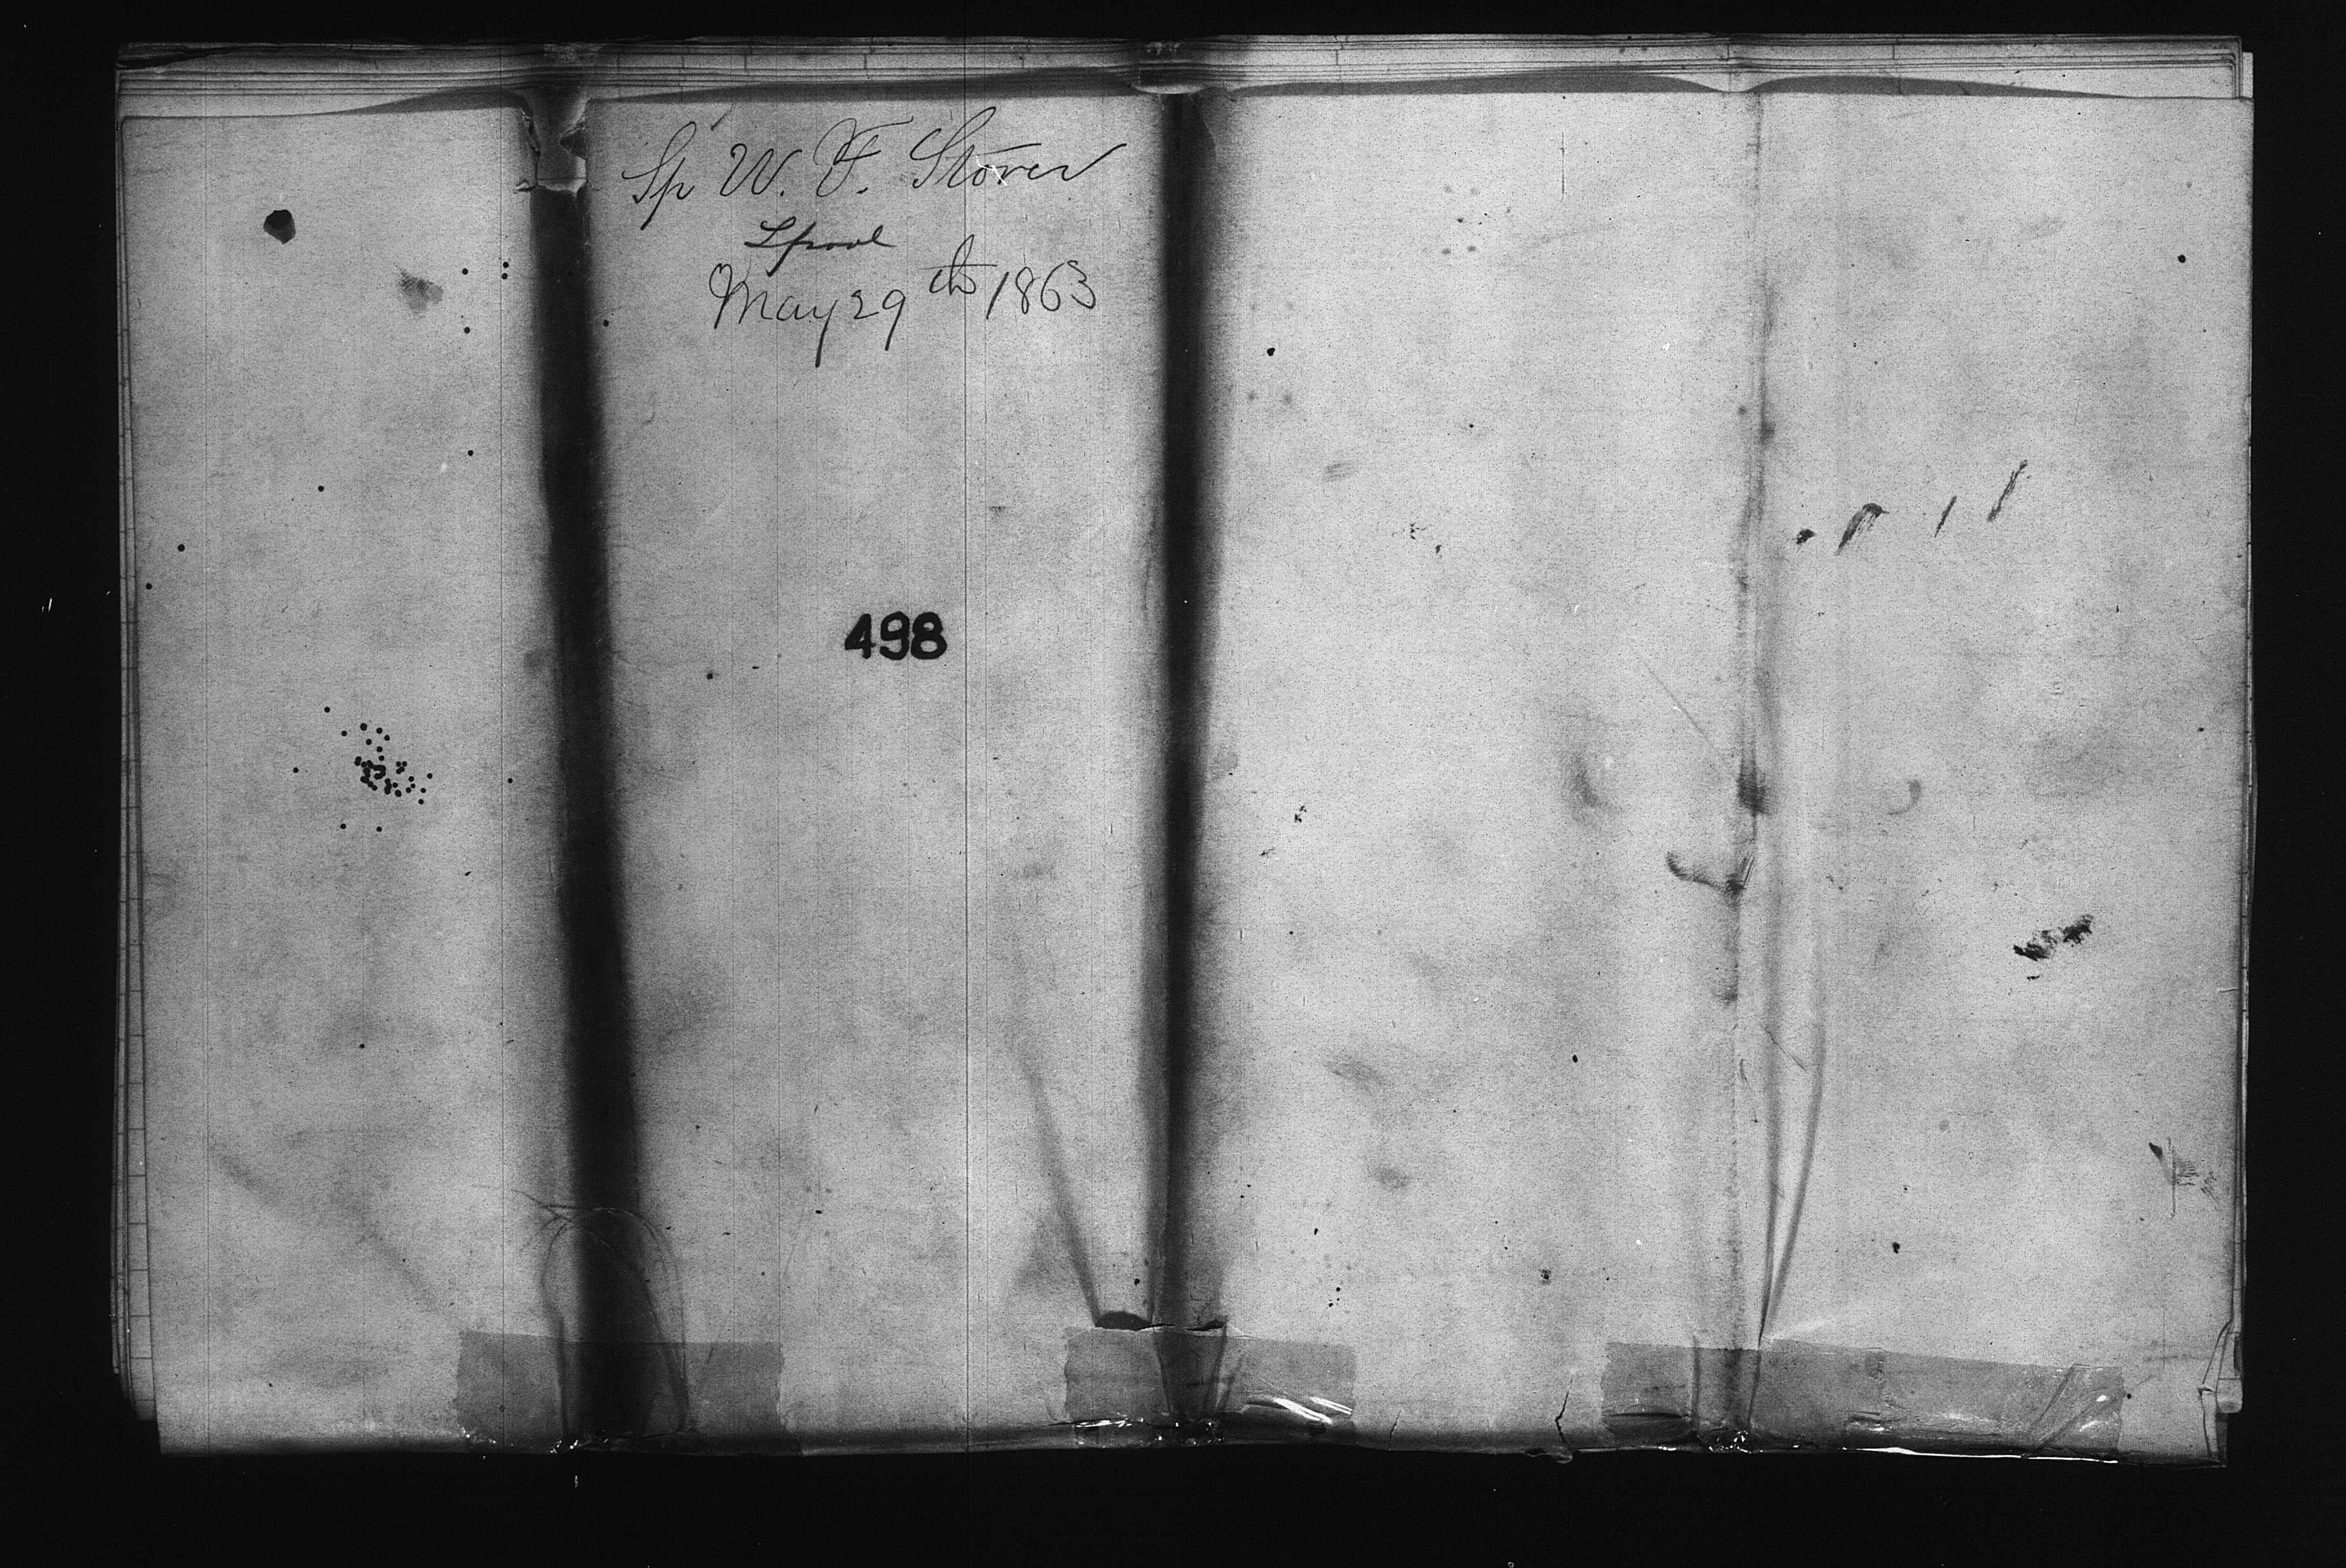 Sp W. F. Stover
Lpool
May 29th 1863
498